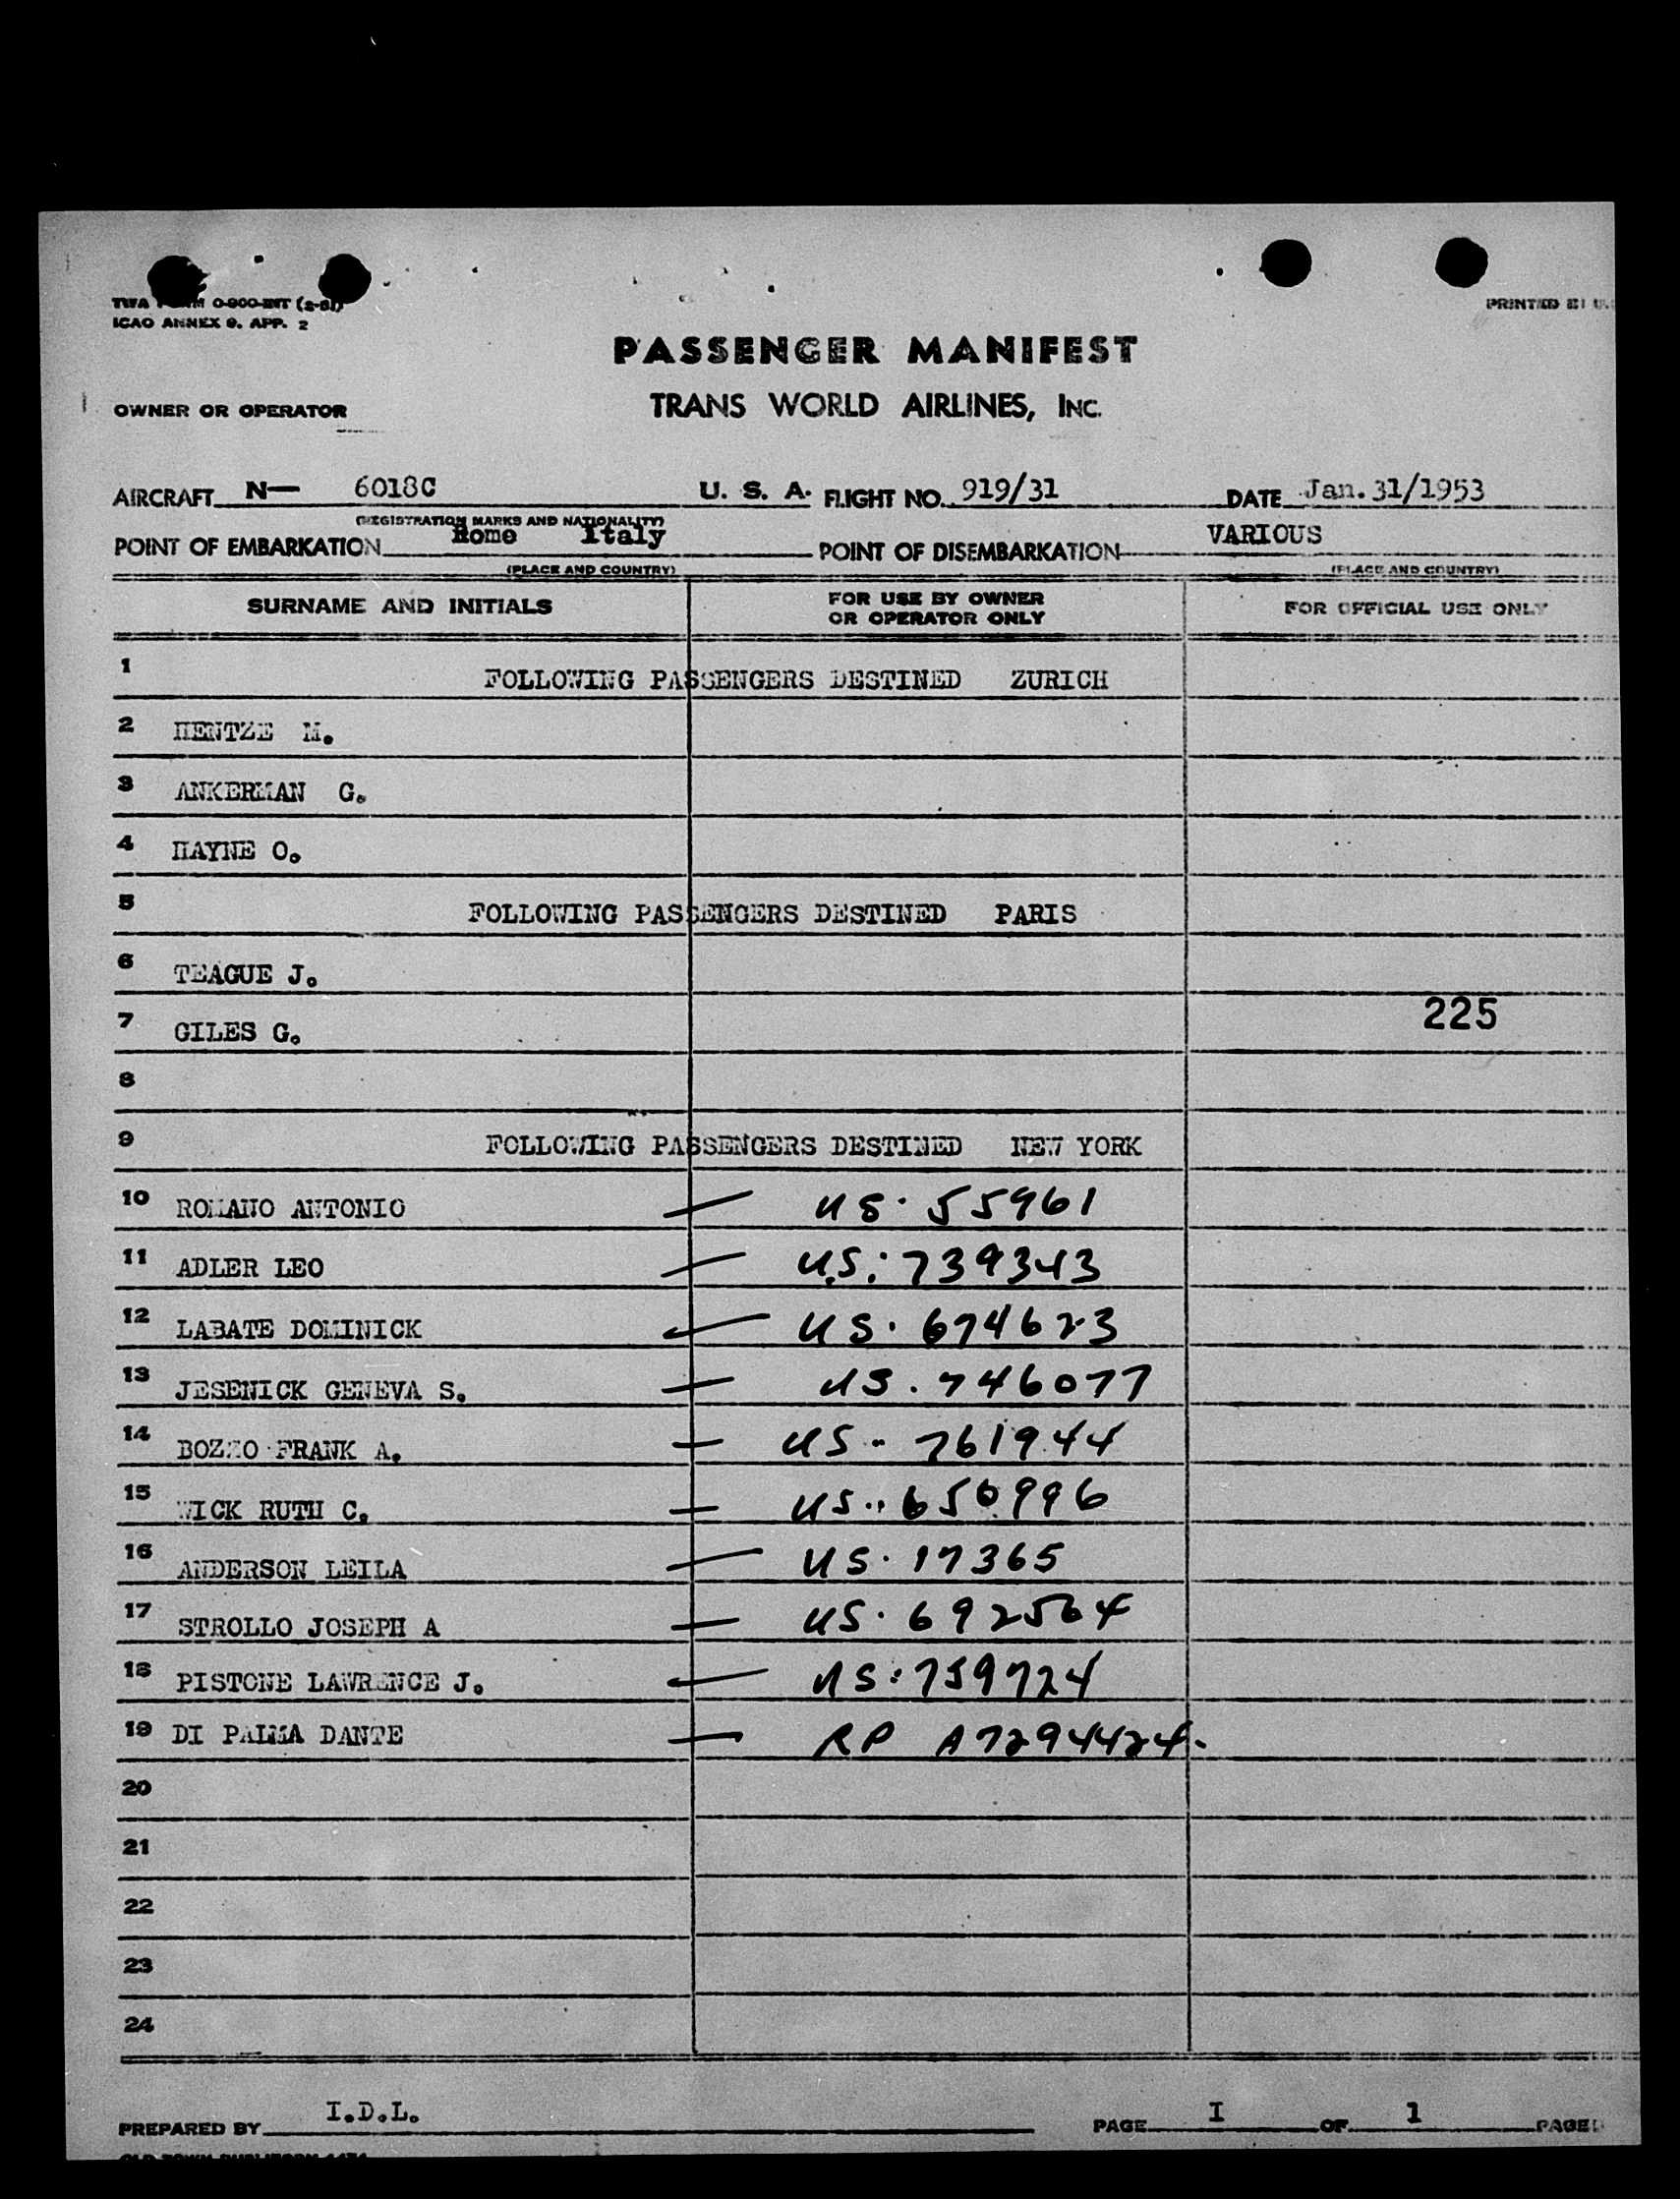 TWA FORM O-900-INT (2-51)
ICAO ANNEX 9. APP. 2
PRINTED
PASSENGER MANIFEST
OWNER OR OPERATOR TRANS WORLD AIRLINES, INC.
AIRCRAFT N— 6018C U. S. A. FLIGHT NO. 919/31 DATE Jan. 31/1953
(REGISTRATION MARKS AND NATIONALITY)
POINT OF EMBARKATION Rome Italy POINT OF DISEMBARKATION VARIOUS
(PLACE AND COUNTRY) (PLACE AND COUNTRY)
SURNAME AND INITIALS FOR USE BY OWNER OR OPERATOR ONLY FOR OFFICIAL USE ONLY
1 FOLLOWING PASSENGERS DESTINED ZURICH
2 HENTZE M.
3 ANKERMAN G.
4 HAYNE O.
5 FOLLOWING PASSENGERS DESTINED PARIS
6 TEAGUE J.
7 GILES G. 225
8
9 FOLLOWING PASSENGERS DESTINED NEW YORK
10 ROMANO ANTONIO — US. 55961
11 ADLER LEO — U.S: 739343
12 LABATE DOMINICK — US. 674623
13 JESENICK GENEVA S. — US. 746077
14 BOZZO FRANK A. — US - 761944
15 WICK RUTH C. — US. 650996
16 ANDERSON LEILA — US. 17365
17 STROLLO JOSEPH A — US. 692564
18 PISTONE LAWRENCE J. — US: 759724
19 DI PALMA DANTE — RP A7294424.
20
21
22
23
24
PREPARED BY I.D.L. PAGE I OF 1 PAGE